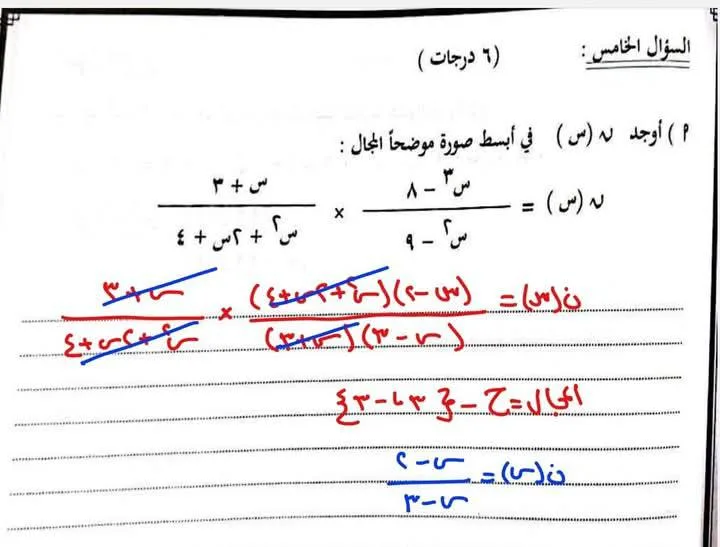 السؤال الخامس : (٦ درجات )
٩ ) أوجد ن (س) في أبسط صورة موضحاً المجال :
ن (س) = (س٣ – ٨) / (س٢ – ٩) × (س + ٣) / (س٢ + ٢س + ٤)
ن(س) = (س-٢)(س٢+٢س+٤) / (س-٣)(س+٣) × (س+٣) / (س٢+٢س+٤)
المجال = ح - {٣ ، -٣}
ن(س) = (س-٢) / (س-٣)